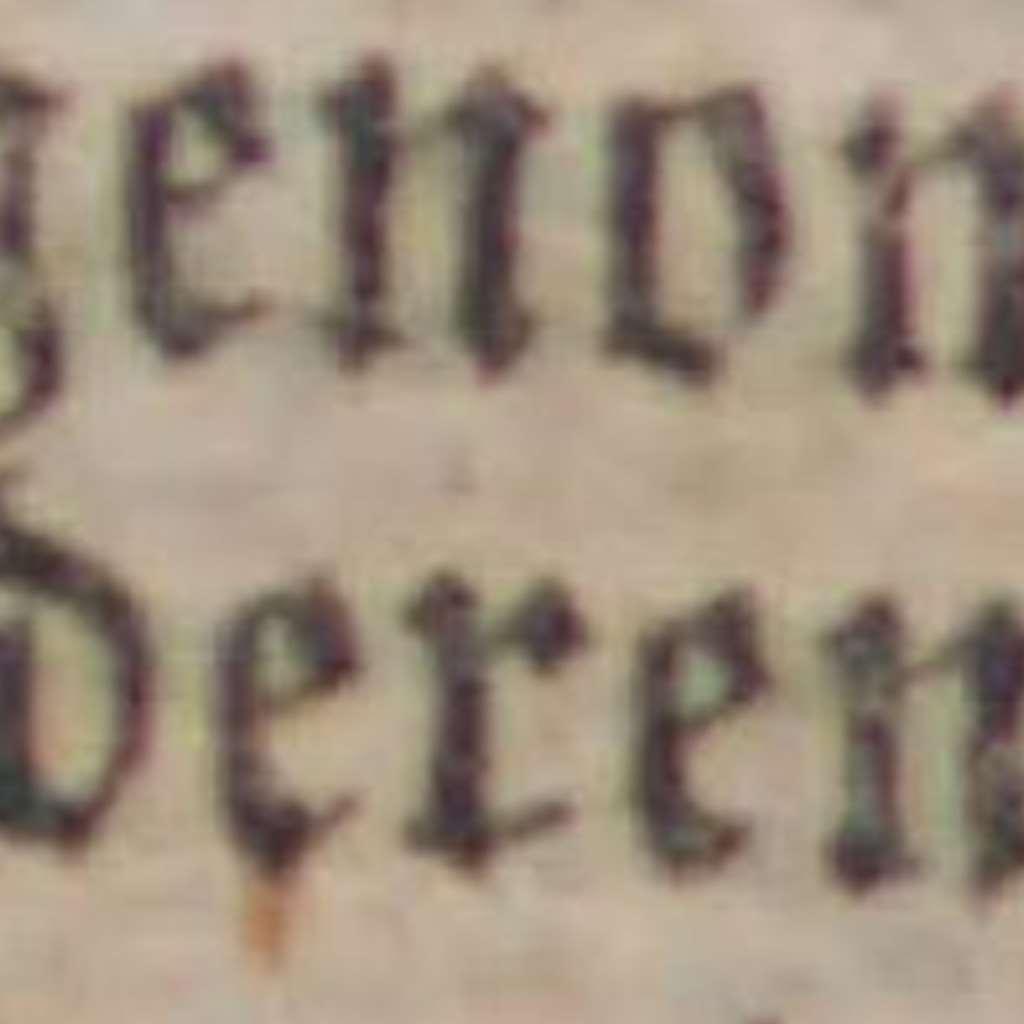 genon
deren